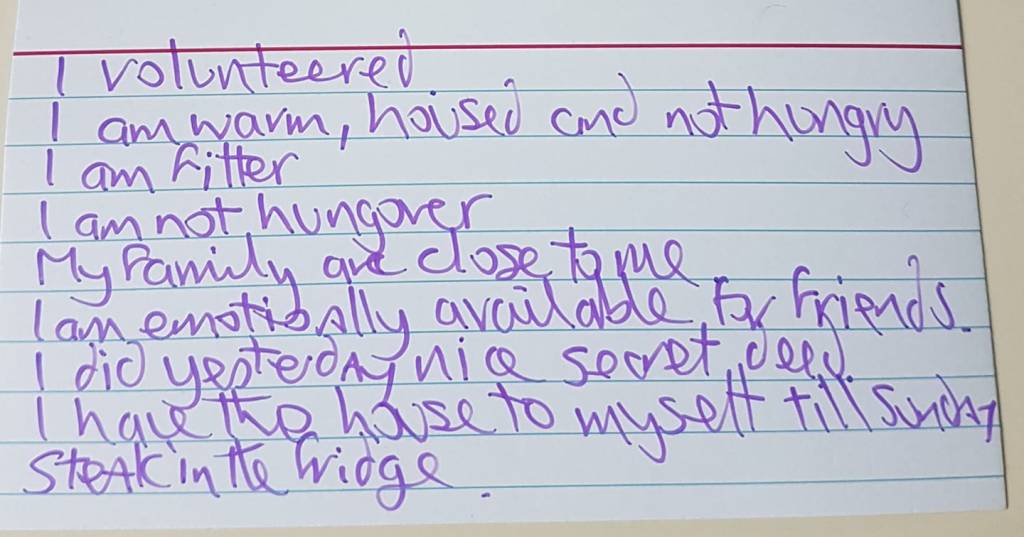 I volunteered
I am warm, housed and not hungry
I am fitter
I am not hungover
My family are close to me
I am emotionally available for friends.
I did yesterday nice secret deed.
I have the house to myself till sunday
Steak in the fridge.